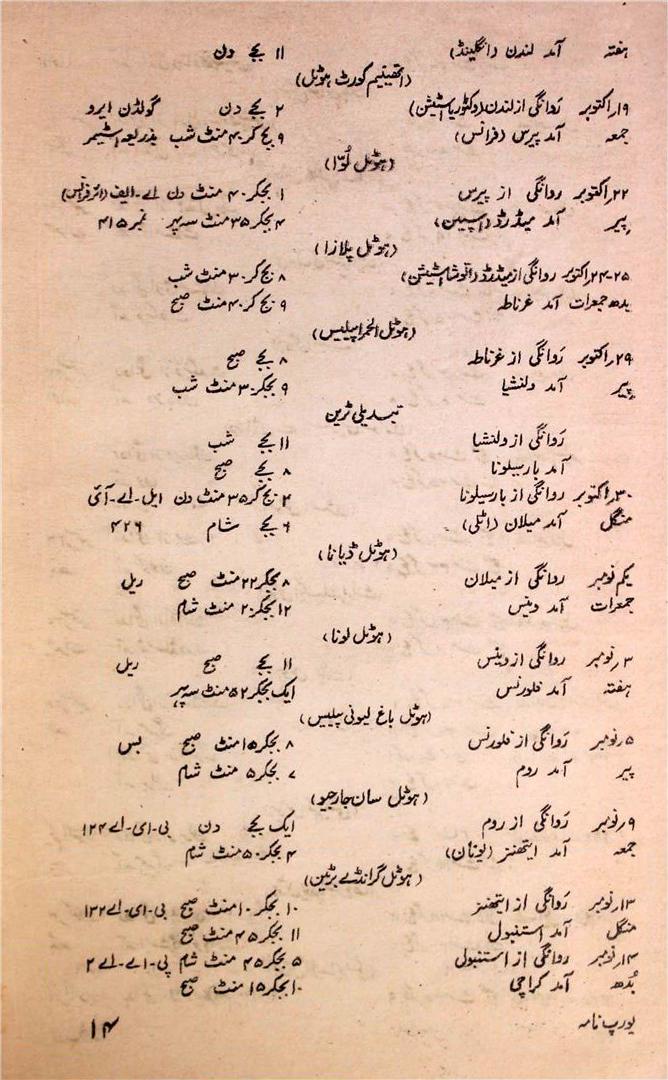 ہفتہ آمد لندن (انگلینڈ) ۱۱ بجے دن
(اتھینیم کورٹ ہوٹل)
۱۹ اکتوبر روانگی از لندن (وکٹوریا اسٹیشن) ۲ بجے دن گولڈن ایرو
جمعہ آمد پیرس (فرانس) ۹ بج کر ۴۰ منٹ شب بذریعہ اسٹیمر
(ہوٹل لُوّا)
۲۲ اکتوبر روانگی از پیرس ۱ بجکر ۴۰ منٹ دن اے-ایف (ائر فرانس)
پیر آمد میڈرڈ (اسپین) ۴ بجکر ۳۵ منٹ سہ پہر نمبر ۴۱۵
(ہوٹل پلازا)
۲۴-۲۵ اکتوبر روانگی از میڈرڈ (اتوشا اسٹیشن) ۸ بج کر ۳۰ منٹ شب
بدھ جمعرات آمد غرناطہ ۹ بج کر ۴۰ منٹ صبح
(ہوٹل الحمرا پیلیس)
۲۹ اکتوبر روانگی از غرناطہ ۸ بجے صبح
پیر آمد ولنشیا ۹ بجکر ۳۰ منٹ شب
تبدیلی ٹرین
روانگی از ولنشیا ۱۱ بجے شب
آمد بارسیلونا ۸ بجے صبح
۳۰ اکتوبر روانگی از بارسیلونا ۲ بج کر ۳۵ منٹ دن ایل-اے-آئی
منگل آمد میلان (اٹلی) ۶ بجے شام ۴۲۶
(ہوٹل ڈیانا)
یکم نومبر روانگی از میلان ۸ بجکر ۲۲ منٹ صبح ریل
جمعرات آمد وینس ۱۲ بجکر ۲۰ منٹ شام
(ہوٹل لونا)
۳ نومبر روانگی از وینس ۱۱ بجے صبح ریل
ہفتہ آمد فلورنس ایک بجکر ۵۲ منٹ سہ پہر
(ہوٹل باغ لیونی پلیس)
۵ نومبر روانگی از فلورنس ۸ بجکر ۱۵ منٹ صبح بس
پیر آمد روم ۷ بجکر ۵ منٹ شام
(ہوٹل سان جارجیو)
۹ نومبر روانگی از روم ایک بجے دن بی-ای-اے ۱۲۴
جمعہ آمد ایتھنز (یونان) ۴ بجکر ۵۰ منٹ شام
(ہوٹل گرانڈے بریٹین)
۱۳ نومبر روانگی از ایتھنز ۱۰ بجکر ۱۰ منٹ صبح بی-ای-اے ۱۳۲
منگل آمد استنبول ۱۱ بجکر ۴۵ منٹ صبح
۱۴ نومبر روانگی از استنبول ۵ بجکر ۴۵ منٹ شام پی-اے-اے ۲
بُدھ آمد کراچی ۱۰ بجکر ۱۵ منٹ صبح
یورپ نامہ ۱۴